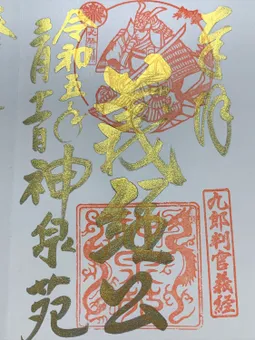 奉拝
義経公
九郎判官義経
令和五年
神泉苑